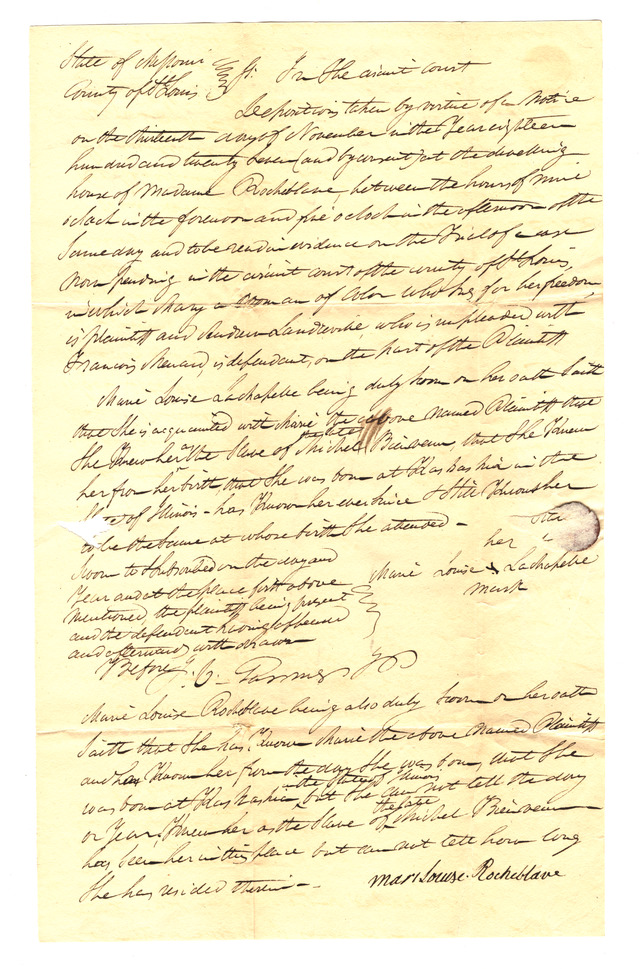 State of Missouri
County of St Louis } St. In the circuit court
Depositions taken by virtue of a Notice
on the thirteenth day of November in the Year eighteen
hundred and twenty Seven (and by consent) at the dwelling
house of Madame Rocheblave, between the hours of nine
oclock in the forenoon and five oclock in the afternoon of the
Same day and to be read in evidence on the Trial of a case
now pending in the circuit court of the county of St Louis,
in which Mary a Woman of Color who sues for her freedom,
is plaintiff and Andrew Landreville, who is impleaded with
Francois Menard, is defendant, on the part of the Plaintiff
Marie Louise Lachapelle being duly Sworn on her oath Saith
that She is acquainted with Marie the above Named Plaintiff that
She Knew her as the Slave of the late Michel Beinvenu, that She Knew
her from her birth, that She was born at Kaskaskia in the
State of Illinois - has Known her ever Since & Still Knows her
to be the Same at whose birth She attended -
Sworn to & Subscribed on the day and
Year and at the place first above
Mentioned, the plaintiff being present
and the defendant having
and afterwards withdrawn
Before
her
Marie Louise X Lachapelle
mark
Marie Louise Rocheblave being also duly Sworn on her oath
Saith that She has Known Marie the above Named Plaintiff
and has Known her from the day She was born, that She
was born at Kaskaskia in the State of Illinois, but She can not tell the day
or Year, Knew her as the Slave of the late Michel Beinvenu
has Seen her in this place but can not tell how long
She has resided therein -
Mari Louise Rocheblave